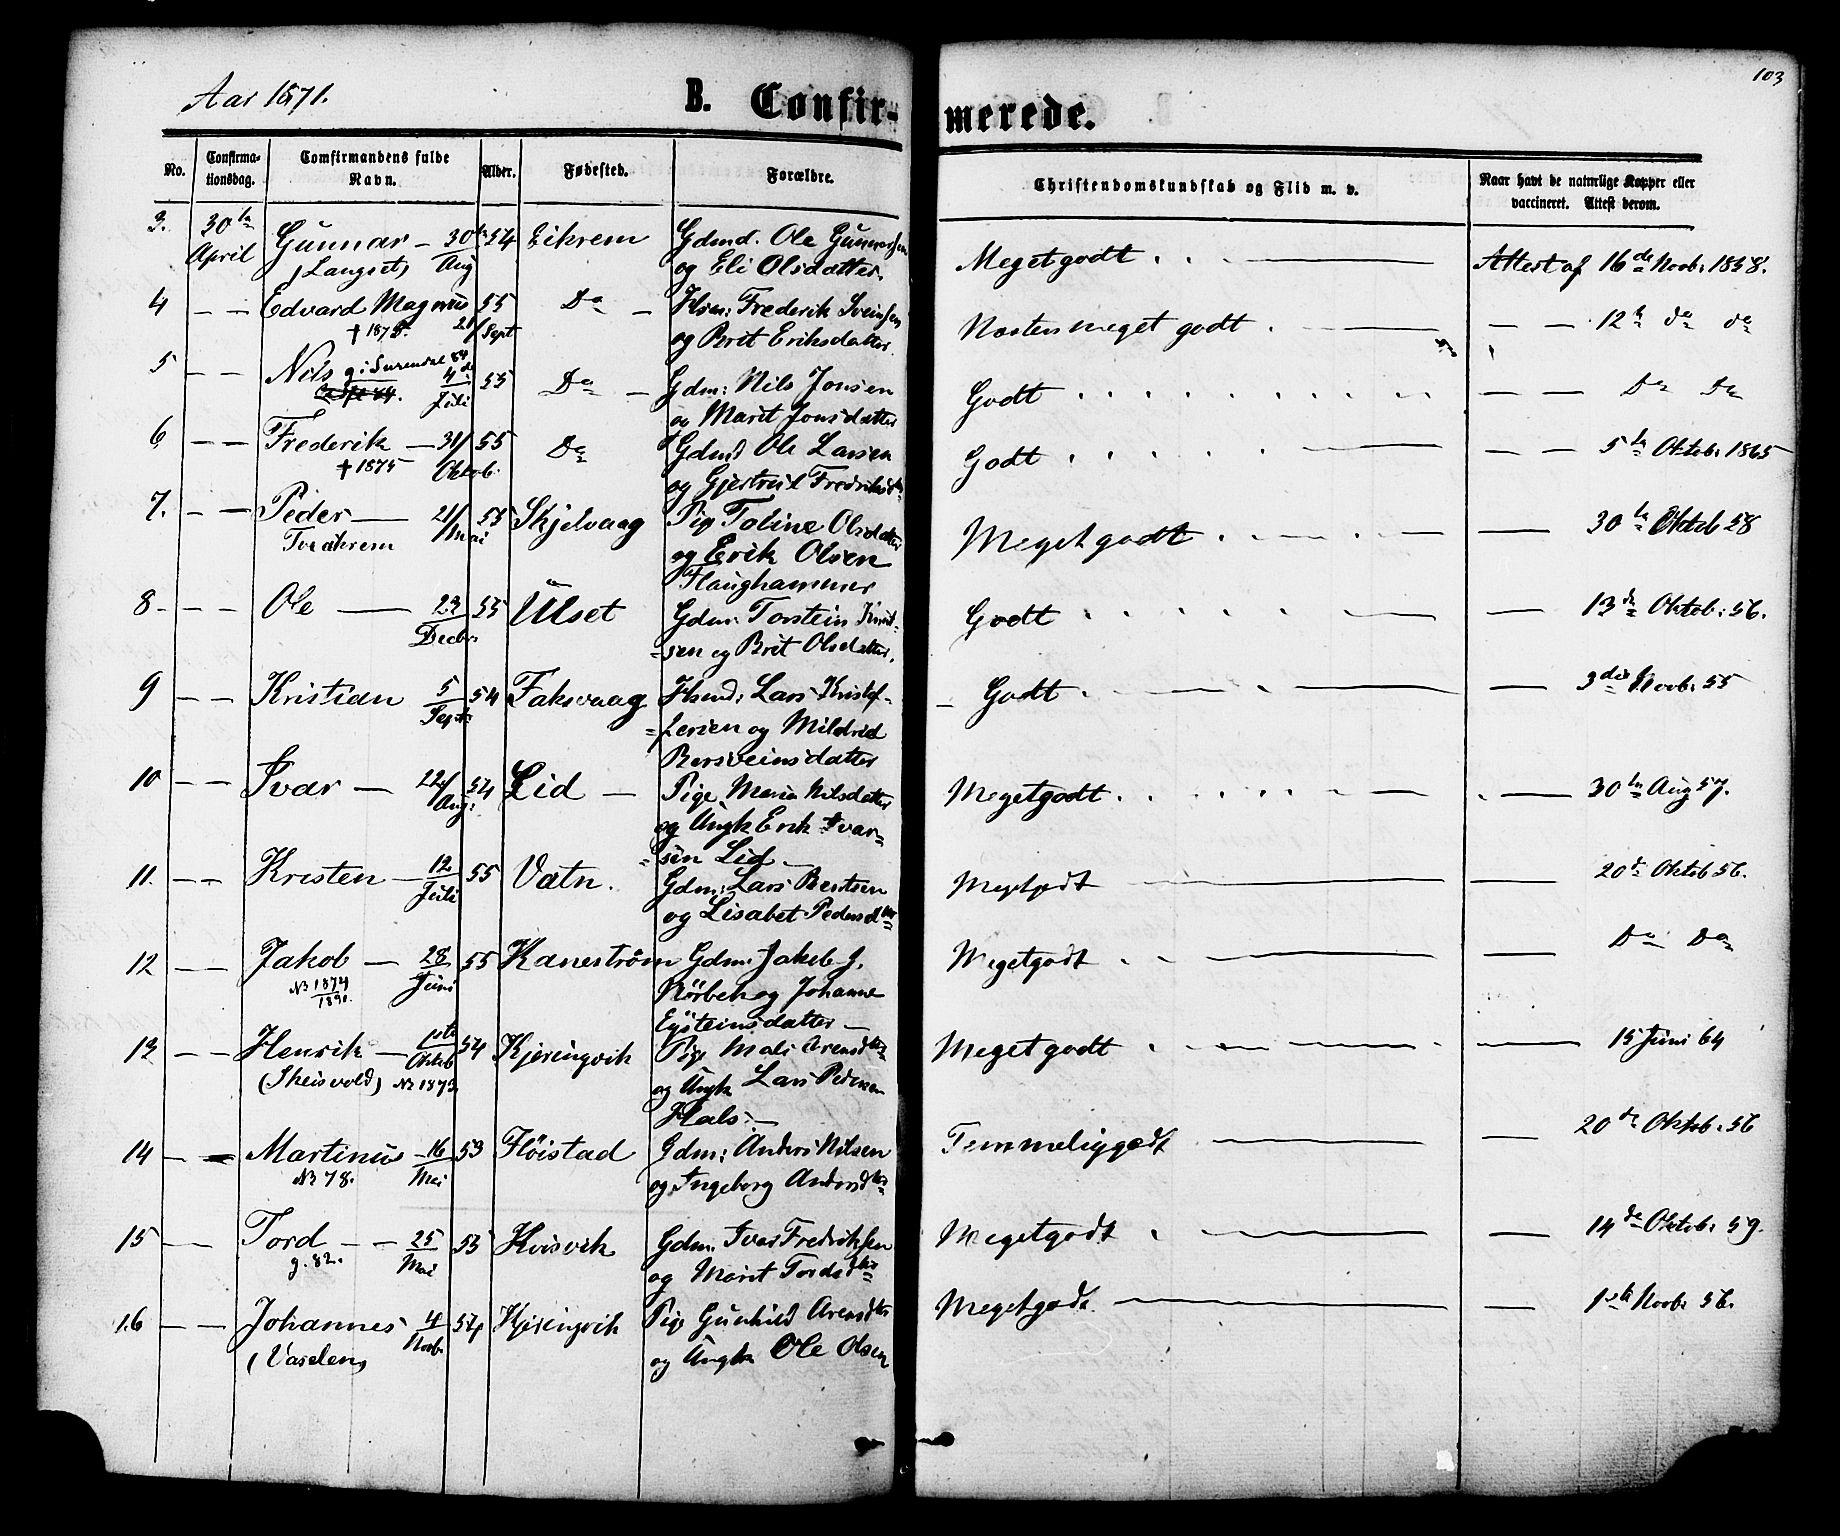 103
Aar 1871.
B. Confir-merede.
No. Confirma-tionsdag. Comfirmandens fulde Navn. Alder. Fødested. Forældre. Christendomskundskab og Flid m. v. Naar havt de naturlige Kopper eller vaccineret. Attest derom.
3. 30te April Gunnar - 30te Aug 54 Eikrem Gdmd. Ole Gunnersen Megetgodt Attest af 16de Novb: 1858.
(Langset) og Eli Olsdatter.
4 - - Edvard Magnus 55 Do - Hsm: Frederik Sveinsen Næsten meget godt - - 12te do do
† 1878. 21/Sept og Brit Eriksdatter.
5 - - Nils g. i Surendal 84 4de Juli 55 Do - Gdm: Nils Jonsen Godt - - Do Do
og Marit Jonsdatter
6 - - Frederik - 31/Oktob. 55 Do Gdmd Ole Larsen Godt - - 5te Oktob: 1865
† 1875 og Gjertrud Fredriksdtr
7. - - Peder - 21/Mai 55 Skjelvaag Pige Toline Olsdatter Megetgodt - 30te Oktob 58
Tveekrem og Erik Olsen
Flaughammer
8 - - - Ole - 23 Decbr 55 Ulset Gdm: Torstein Knud- Godt - 13de Oktob: 56.
=sen og Brit Olsdatter.
9 - - Kristian 5 Septr 54 Faksvaag Hsmd: Lars Kristof- - Godt - 3die Novb: 55
=fersen og Mildrid
Bersveinsdatter
10 - - Ivar - 22/Aug: 54 Lid - Pige Maria Nilsdatter Megetgodt - 30te Aug 57.
og Ungk Erik Ivar-
=sen Lid -
11. - - Kristen - 12 Juli 55 Vatn. Gdm: Lars Berntsen Megetgodt - 20de Oktob 56.
og Lisabet Pedersdtr
12 - - Jakob - 28 Juni 55 Kanestrøm Gdm: Jakob J. Megetgodt - Do Do
NB 1874 1890. Nörbek og Johanne
Eysteinsdatter -
13 - - Henrik - 1ste Oktob 54 Kjeringvik Pige Mali Arendsdtr Megetgodt - 15 Juni 64
(Skeisvold) NB 1873. og Ungk Lars Pedersen
Hals. -
14 - - Martinus - 16 Mai 53 Flöistad Gdm: Anders Nilsen Temmeliggodt - 20de Oktob. 56
NB 78. og Ingeborg Andersdtr
15 - - Tord - - 25 Mai 53 Kvisvik Gdm: Iver Fredriksen Megetgodt - 14de Oktob: 59.
g. 82. og Marit Tordsdtr
16 - - Johannes 4 Novb. 54 Kjeringvik Pige Gunhild Arendsdtr Megetgodt. - 1ste Novb: 56.
(Vaselen) og Ungk Ole Olsen